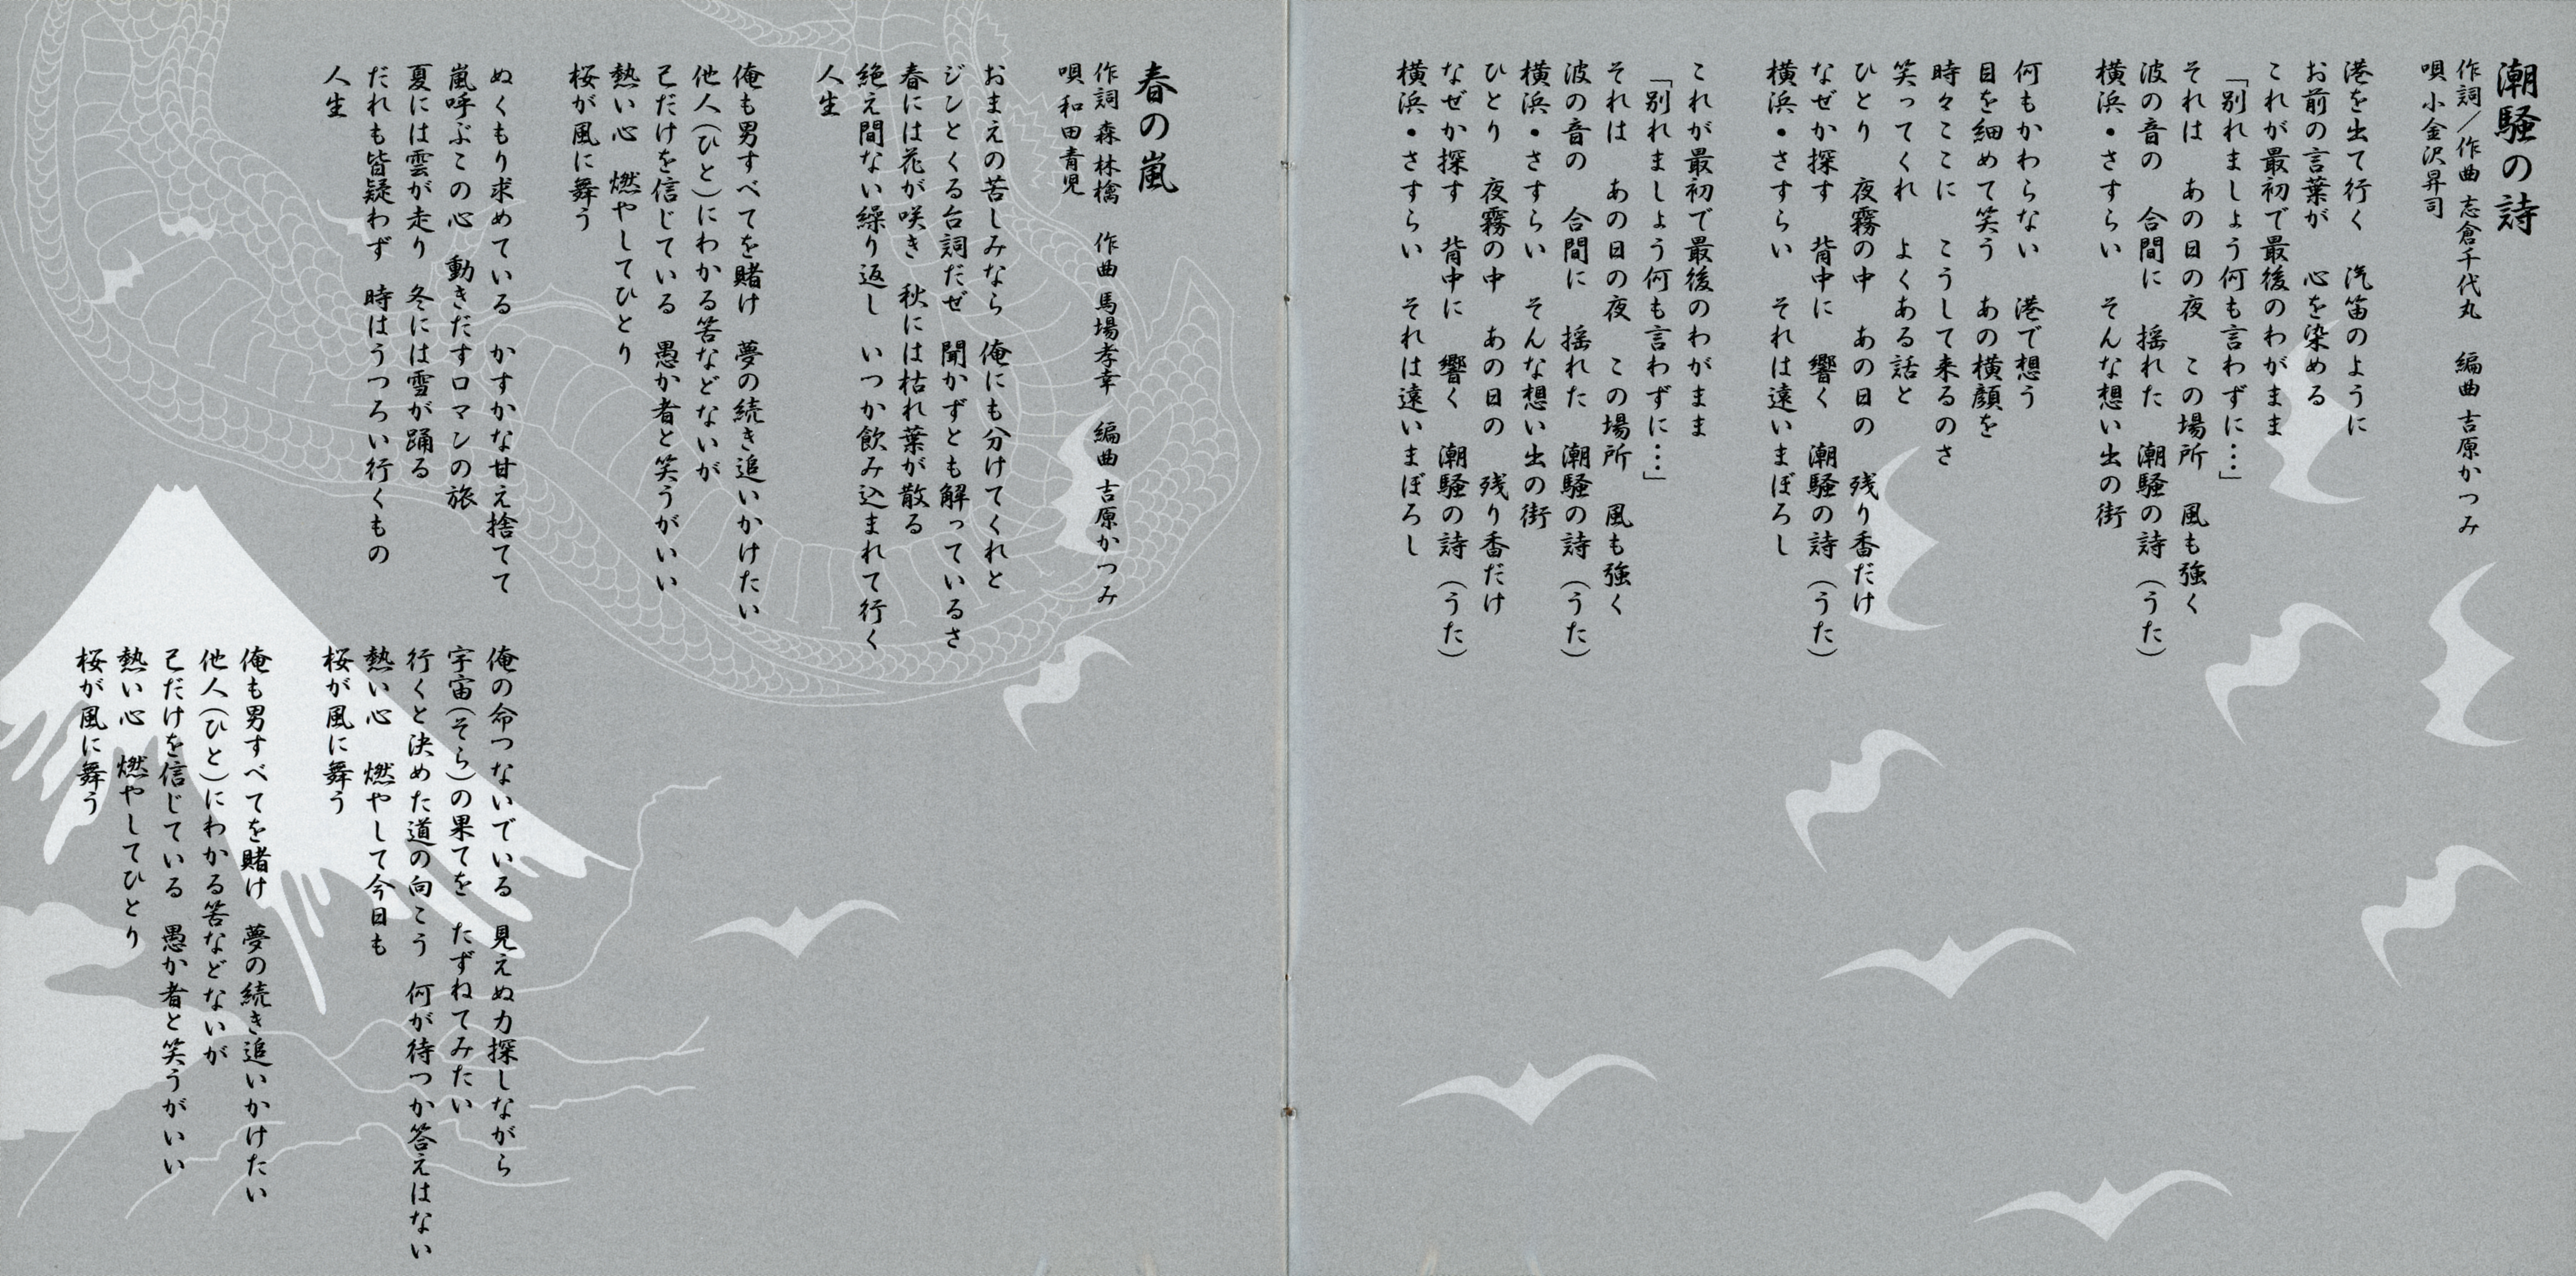 潮騒の詩
作詞／作曲 志倉千代丸　編曲 吉原かつみ
唄 小金沢昇司
港を出て行く　汽笛のように
お前の言葉が　心を染める
これが最初で最後のわがまま
「別れましょう何も言わずに…」
それは　あの日の夜　この場所　風も強く
波の音の　合間に　揺れた　潮騒の詩（うた）
横浜・さすらい　そんな想い出の街
何もかわらない　港で想う
目を細めて笑う　あの横顔を
時々ここに　こうして来るのさ
笑ってくれ　よくある話と
ひとり　夜霧の中　あの日の　残り香だけ
なぜか探す　背中に　響く　潮騒の詩（うた）
横浜・さすらい　それは遠いまぼろし
これが最初で最後のわがまま
「別れましょう何も言わずに…」
それは　あの日の夜　この場所　風も強く
波の音の　合間に　揺れた　潮騒の詩（うた）
横浜・さすらい　そんな想い出の街
ひとり　夜霧の中　あの日の　残り香だけ
なぜか探す　背中に　響く　潮騒の詩（うた）
横浜・さすらい　それは遠いまぼろし
春の嵐
作詞 森林檎　作曲 馬場孝幸　編曲 吉原かつみ
唄 和田青児
おまえの苦しみなら　俺にも分けてくれと
ジンとくる台詞だぜ　聞かずとも解っているさ
春には花が咲き　秋には枯れ葉が散る
絶え間ない繰り返し　いつか飲み込まれて行く
人生
俺も男すべてを賭け　夢の続き追いかけたい
他人（ひと）にわかる答などないが
己だけを信じている　愚か者と笑うがいい
熱い心　燃やしてひとり
桜が風に舞う
ぬくもり求めている　かすかな甘え捨てて
嵐呼ぶこの心　動きだすロマンの旅
夏には雲が走り　冬には雪が踊る
だれも皆疑わず　時はうつろい行くもの
人生
俺の命つないでいる　見えぬ力探しながら
宇宙（そら）の果てを　たずねてみたい
行くと決めた道の向こう　何が待つか答えはない
熱い心　燃やして今日も
桜が風に舞う
俺も男すべてを賭け　夢の続き追いかけたい
他人（ひと）にわかる答などないが
己だけを信じている　愚か者と笑うがいい
熱い心　燃やしてひとり
桜が風に舞う